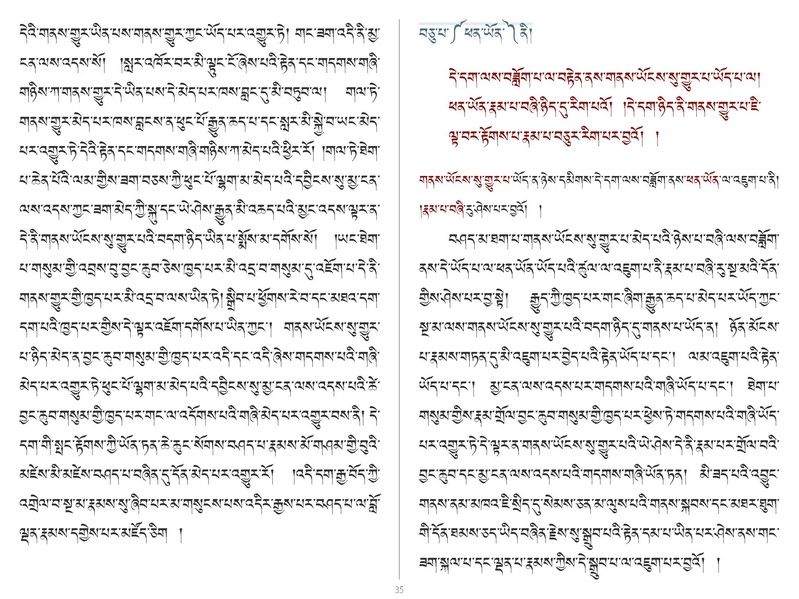 དེའི་གནས་གྱུར་ཡིན་པས་གནས་གྱུར་ཀྱང་ཡོད་པར་འགྱུར་ཏེ། གང་ཟག་འདི་ནི་མྱ་
ངན་ལས་འདས་སོ། །སླར་འཁོར་བར་མི་ལྟུང་ངོ་ཞེས་པའི་རྟེན་དང་གདགས་གཞི་
གཉིས་ཀ་གནས་གྱུར་དེ་ཡིན་པས་དེ་མེད་པར་ཁས་བླང་དུ་མི་བཏུབ་ལ། གལ་ཏེ་
གནས་གྱུར་མེད་པར་ཁས་བླངས་ན་ཕུང་པོ་རྒྱུན་ཆད་པ་དང་སླར་མི་སྐྱེ་བ་ཡང་མེད་
པར་འགྱུར་ཏེ་དེའི་རྟེན་དང་གདགས་གཞི་གཉིས་ཀ་མེད་པའི་ཕྱིར་རོ། །གལ་ཏེ་ཐེག་
པ་ཆེན་པོའི་ལམ་གྱིས་ཟག་བཅས་ཀྱི་ཕུང་པོ་ལྷག་མ་མེད་པའི་དབྱིངས་སུ་མྱ་ངན་
ལས་འདས་ཀྱང་ཟག་མེད་ཀྱི་སྐུ་དང་ཡེ་ཤེས་རྒྱུན་མི་འཆད་པའི་མྱང་འདས་ལྟར་ན་
དེ་ནི་གནས་ཡོངས་སུ་གྱུར་པའི་བདག་ཉིད་ཡིན་པ་སྨོས་མ་དགོས་སོ། །ཡང་ཐེག་
པ་གསུམ་གྱི་འབྲས་བུ་བྱང་ཆུབ་ཅེས་ཁྱད་པར་མི་འདྲ་བ་གསུམ་དུ་འཇོག་པ་དེ་ནི་
གནས་གྱུར་གྱི་ཁྱད་པར་མི་འདྲ་བ་ལས་ཡིན་ཏེ། སྒྲིབ་པ་ཕྱོགས་རེ་བ་དང་མཐའ་དག་
དག་པའི་ཁྱད་པར་གྱིས་དེ་ལྟར་འཇོག་དགོས་པ་ཡིན་ཀྱང་། གནས་ཡོངས་སུ་གྱུར་
པ་ཉིད་མེད་ན་བྱང་ཆུབ་གསུམ་གྱི་ཁྱད་པར་འདི་དང་འདི་ཞེས་གདགས་པའི་གཞི་
མེད་པར་འགྱུར་ཏེ་ཕུང་པོ་ལྷག་མ་མེད་པའི་དབྱིངས་སུ་མྱ་ངན་ལས་འདས་པའི་ཚེ་
བྱང་ཆུབ་གསུམ་གྱི་ཁྱད་པར་གང་ལ་འདོགས་པའི་གཞི་མེད་པར་འགྱུར་བས་ནི། དེ་
དག་གི་སྤང་རྟོགས་ཀྱི་ཡོན་ཏན་ཆེ་ཆུང་སོགས་བཤད་པ་རྣམས་མོ་གཤམ་གྱི་བུའི་
མཛེས་མི་མཛེས་བཤད་པ་བཞིན་དུ་དོན་མེད་པར་འགྱུར་རོ། །འདི་དག་རྒྱ་བོད་ཀྱི་
འགྲེལ་བ་སྔ་མ་རྣམས་སུ་ཞིབ་པར་མ་གསུངས་པས་འདིར་རྒྱས་པར་བཤད་པ་ལ་བློ་
ལྡན་རྣམས་དགྱེས་པར་མཛོད་ཅིག །
བཅུ་པ་༼ཕན་ཡོན་༽ནི།
དེ་དག་ལས་བཟློག་པ་ལ་བརྟེན་ནས་གནས་ཡོངས་སུ་གྱུར་པ་ཡོད་པ་ལ།
ཕན་ཡོན་རྣམ་པ་བཞི་ཉིད་དུ་རིག་པའོ། །དེ་དག་ཉིད་ནི་གནས་གྱུར་པ་ཇི་
ལྟ་བར་རྟོགས་པ་རྣམ་པ་བཅུར་རིག་པར་བྱའོ། །
གནས་ཡོངས་སུ་གྱུར་པ་ཡོད་ན་ཉེས་དམིགས་དེ་དག་ལས་བཟློག་ནས་ཕན་ཡོན་ལ་འཇུག་པ་ནི།
།རྣམ་པ་བཞི་རུ་ཤེས་པར་བྱའོ། །
བཤད་མ་ཐག་པ་གནས་ཡོངས་སུ་གྱུར་པ་མེད་པའི་ཉེས་པ་བཞི་ལས་བཟློག་
ནས་དེ་ཡོད་པ་ལ་ཕན་ཡོན་ཡོད་པའི་ཚུལ་ལ་འཇུག་པ་ནི་རྣམ་པ་བཞི་རུ་སྔ་མའི་དོན་
གྱིས་ཤེས་པར་བྱ་སྟེ། རྒྱུད་ཀྱི་ཁྱད་པར་གང་ཞིག་རྒྱུན་ཆད་པ་མེད་པར་ཡོད་ཀྱང་
སྔ་མ་ལས་གནས་ཡོངས་སུ་གྱུར་པའི་བདག་ཉིད་དུ་གནས་པ་ཡོད་ན། ཉོན་མོངས་
པ་རྣམས་གཏན་དུ་མི་འཇུག་པར་བྱེད་པའི་རྟེན་ཡོད་པ་དང་། ལམ་འཇུག་པའི་རྟེན་
ཡོད་པ་དང་། མྱ་ངན་ལས་འདས་པར་གདགས་པའི་གཞི་ཡོད་པ་དང་། ཐེག་པ་
གསུམ་གྱིས་རྣམ་གྲོལ་བྱང་ཆུབ་གསུམ་གྱི་ཁྱད་པར་ཕྱེས་ཏེ་གདགས་པའི་གཞི་ཡོད་
པར་འགྱུར་ཏེ་དེ་ལྟར་ན་གནས་ཡོངས་སུ་གྱུར་པའི་ཡེ་ཤེས་དེ་ནི་རྣམ་པར་གྲོལ་བའི་
བྱང་ཆུབ་དང་མྱ་ངན་ལས་འདས་པའི་གདགས་གཞི་ཡོན་ཏན། མི་ཟད་པའི་འབྱུང་
གནས་ནམ་མཁའ་ཇི་སྲིད་དུ་སེམས་ཅན་མ་ལུས་པའི་གནས་སྐབས་དང་མཐར་ཐུག་
གི་དོན་ཐམས་ཅད་ཡིད་བཞིན་རྗེས་སུ་སྒྲུབ་པའི་རྟེན་དམ་པ་ཡིན་པར་ཤེས་ནས་གང་
ཟག་སྐལ་པ་དང་ལྡན་པ་རྣམས་ཀྱིས་དེ་སྒྲུབ་པ་ལ་འཇུག་པར་བྱའོ། །
35